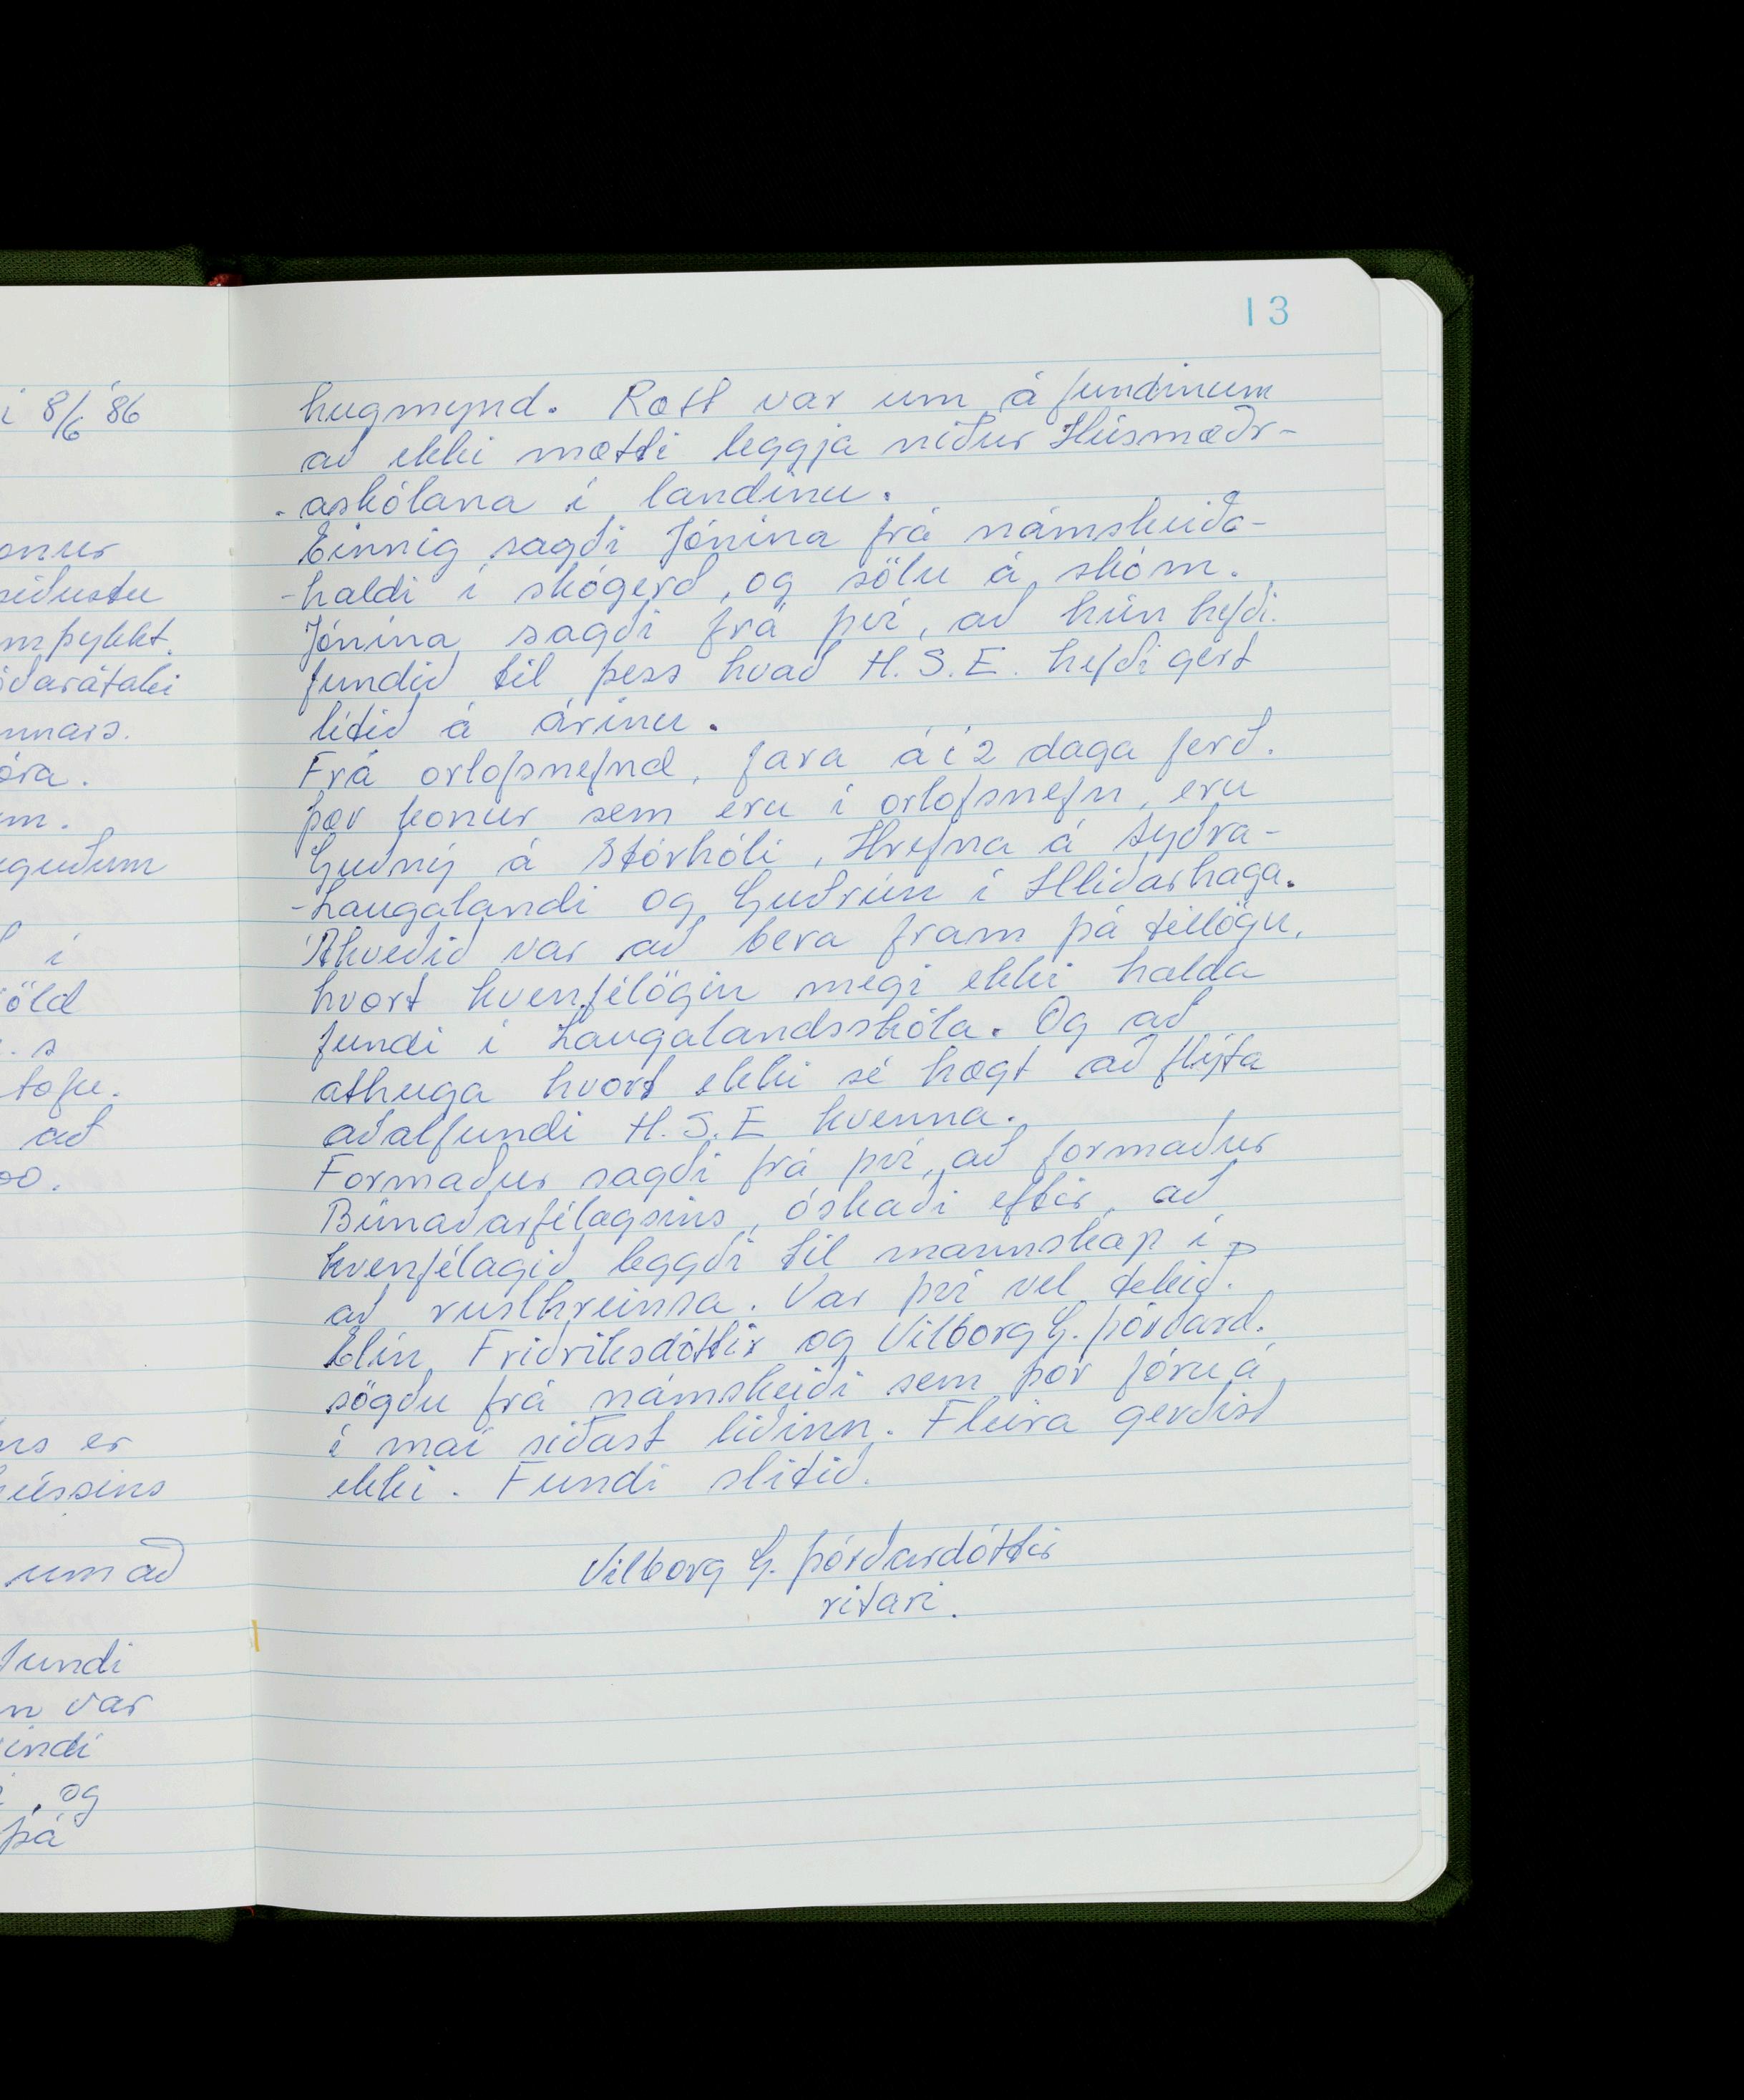 i 8/6 '86
onur
síðustu
mþykkt.
ðarátaki
nnars.
óra.
m.
eguðum
í
öld
. s
tofu.
að
00.
ns er
hússins
um að
fundi
n var
indi
, og
þá
13
hugmynd. Rætt var um á fundinum
að ekki mætti leggja niður Húsmæðr-
-askólana í landinu.
Einnig sagði Jónína frá námskeiða-
-haldi í skógerð, og sölu á skóm.
Jónína sagði frá því, að hún hefði
fundið til þess hvað H.S.E. hefði gert
lítið á árinu.
Frá orlofsnefnd, fara á í 2 daga ferð.
þær konur sem eru í orlofsnefn, eru
Guðný á Stórhóli, Hrefna á Syðra-
-Laugalandi og Guðrún í Hlíðarhaga.
Ákveðið var að bera fram þá tillögu,
hvort kvenfélögin megi ekki halda
fundi í Laugalandsskóla. Og að
athuga hvort ekki sé hægt að flýta
aðalfundi H.S.E kvenna.
Formaður sagði frá því, að formaður
Búnaðarfélagsins, óskaði eftir, að
kvenfélagið leggði til mannskap í
að ruslhreinsa. Var því vel tekið.
Elín Friðriksdóttir og Vilborg G. Þórðard.
sögðu frá námskeiði sem þær fóru á
í maí síðast liðinn. Fleira gerðist
ekki. Fundi slitið.
Vilborg G. Þórðardóttir
ritari.